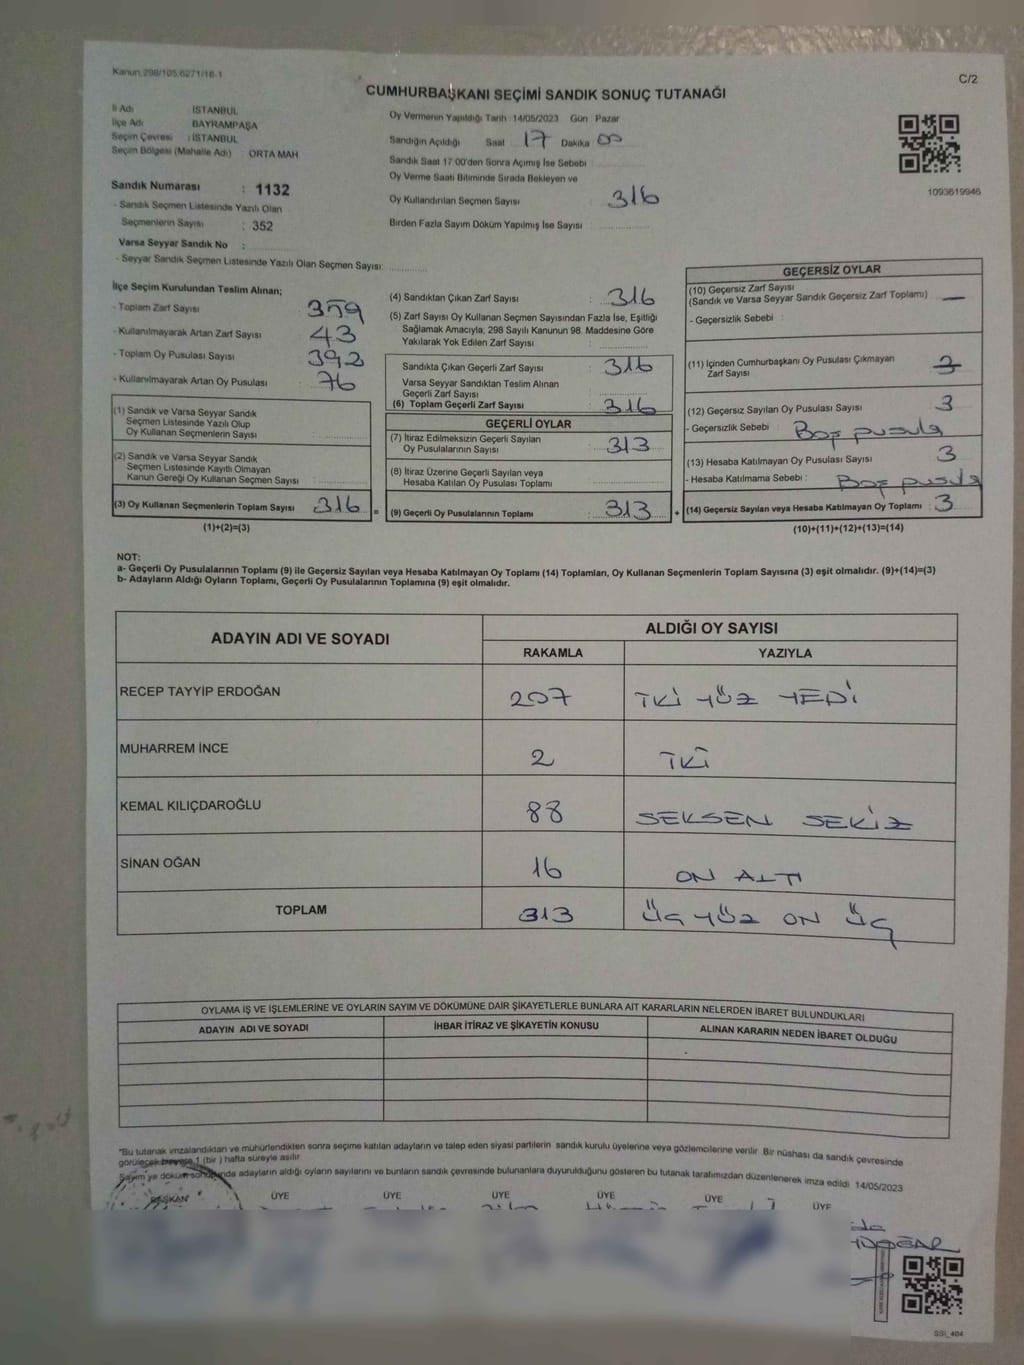 Kanun.298/105.6271/16-1
C/2
CUMHURBAŞKANI SEÇİMİ SANDIK SONUÇ TUTANAĞI
İl Adı : İSTANBUL
İlçe Adı : BAYRAMPAŞA
Seçim Çevresi : İSTANBUL
Seçim Bölgesi (Mahalle Adı) : ORTA MAH
Sandık Numarası : 1132
- Sandık Seçmen Listesinde Yazılı Olan
Seçmenlerin Sayısı : 352
Varsa Seyyar Sandık No :
- Seyyar Sandık Seçmen Listesinde Yazılı Olan Seçmen Sayısı:
Oy Vermenin Yapıldığı Tarih 14/05/2023 Gün Pazar
Sandığın Açıldığı Saat 17 Dakika 00
Sandık Saat 17:00'den Sonra Açımış İse Sebebi
Oy Verme Saati Bitiminde Sırada Bekleyen ve
Oy Kullandırılan Seçmen Sayısı 316
Birden Fazla Sayım Döküm Yapılmış İse Sayısı :
1093619946
İlçe Seçim Kurulundan Teslim Alınan;
- Toplam Zarf Sayısı : 359
- Kullanılmayarak Artan Zarf Sayısı : 43
- Toplam Oy Pusulası Sayısı : 392
- Kullanılmayarak Artan Oy Pusulası : 76
(1) Sandık ve Varsa Seyyar Sandık
Seçmen Listesinde Yazılı Olup
Oy Kullanan Seçmenlerin Sayısı :
(2) Sandık ve Varsa Seyyar Sandık
Seçmen Listesinde Kayıtlı Olmayan
Kanun Gereği Oy Kullanan Seçmen Sayısı :
(3) Oy Kullanan Seçmenlerin Toplam Sayısı : 316 =
(1)+(2)=(3)
(4) Sandıktan Çıkan Zarf Sayısı : 316
(5) Zarf Sayısı Oy Kullanan Seçmen Sayısından Fazla İse, Eşitliği
Sağlamak Amacıyla; 298 Sayılı Kanunun 98. Maddesine Göre
Yakılarak Yok Edilen Zarf Sayısı :
Sandıkta Çıkan Geçerli Zarf Sayısı : 316
Varsa Seyyar Sandıktan Teslim Alınan
Geçerli Zarf Sayısı :
(6) Toplam Geçerli Zarf Sayısı : 316
GEÇERLİ OYLAR
(7) İtiraz Edilmeksizin Geçerli Sayılan
Oy Pusulalarının Sayısı : 313
(8) İtiraz Üzerine Geçerli Sayılan veya
Hesaba Katılan Oy Pusulası Toplamı :
(9) Geçerli Oy Pusulalarının Toplamı : 313 +
GEÇERSİZ OYLAR
(10) Geçersiz Zarf Sayısı
(Sandık ve Varsa Seyyar Sandık Geçersiz Zarf Toplamı) : —
- Geçersizlik Sebebi :
(11) İçinden Cumhurbaşkanı Oy Pusulası Çıkmayan
Zarf Sayısı : 3
(12) Geçersiz Sayılan Oy Pusulası Sayısı : 3
- Geçersizlik Sebebi : Boş pusula
(13) Hesaba Katılmayan Oy Pusulası Sayısı : 3
- Hesaba Katılmama Sebebi : Boş pusula
(14) Geçersiz Sayılan veya Hesaba Katılmayan Oy Toplamı : 3
(10)+(11)+(12)+(13)=(14)
NOT:
a- Geçerli Oy Pusulalarının Toplamı (9) ile Geçersiz Sayılan veya Hesaba Katılmayan Oy Toplamı (14) Toplamları, Oy Kullanan Seçmenlerin Toplam Sayısına (3) eşit olmalıdır. (9)+(14)=(3)
b- Adayların Aldığı Oyların Toplamı, Geçerli Oy Pusulalarının Toplamına (9) eşit olmalıdır.
ADAYIN ADI VE SOYADI
ALDIĞI OY SAYISI
RAKAMLA YAZIYLA
RECEP TAYYİP ERDOĞAN 207 İKİ YÜZ YEDİ
MUHARREM İNCE 2 İKİ
KEMAL KILIÇDAROĞLU 88 SEKSEN SEKİZ
SİNAN OĞAN 16 ON ALTI
TOPLAM 313 ÜÇ YÜZ ON ÜÇ
OYLAMA İŞ VE İŞLEMLERİNE VE OYLARIN SAYIM VE DÖKÜMÜNE DAİR ŞİKAYETLERLE BUNLARA AİT KARARLARIN NELERDEN İBARET BULUNDUKLARI
ADAYIN ADI VE SOYADI İHBAR İTİRAZ VE ŞİKAYETİN KONUSU ALINAN KARARIN NEDEN İBARET OLDUĞU
"Bu tutanak imzalandıktan ve mühürlendikten sonra seçime katılan adayların ve talep eden siyasi partilerin sandık kurulu üyelerine veya gözlemcilerine verilir. Bir nüshası da sandık çevresinde
görülecek bir yere 1 (bir ) hafta süreyle asılır.
Sayım ve döküm sonucunda adayların aldığı oyların sayılarını ve bunların sandık çevresinde bulunanlara duyurulduğunu gösteren bu tutanak tarafımızdan düzenlenerek imza edildi 14/05/2023
BAŞKAN ÜYE ÜYE ÜYE ÜYE ÜYE ÜYE
SSI_404